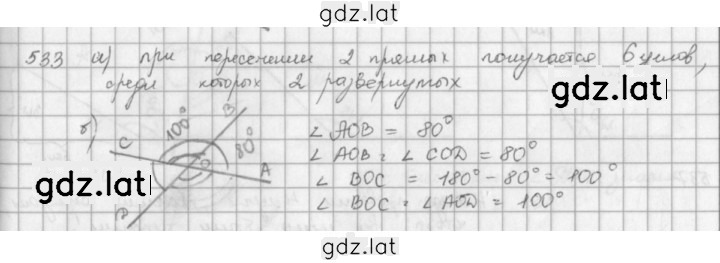 gdz.lat
533 а) при пересечении 2 прямых получается 6 углов,
среди которых 2 развернутых
gdz.lat
б)
B
100°
80°
C
O
A
D
∠ AOB = 80°
∠ AOB = ∠ COD = 80°
∠ BOC = 180° - 80° = 100°
∠ BOC = ∠ AOD = 100°
gdz.lat
gdz.lat